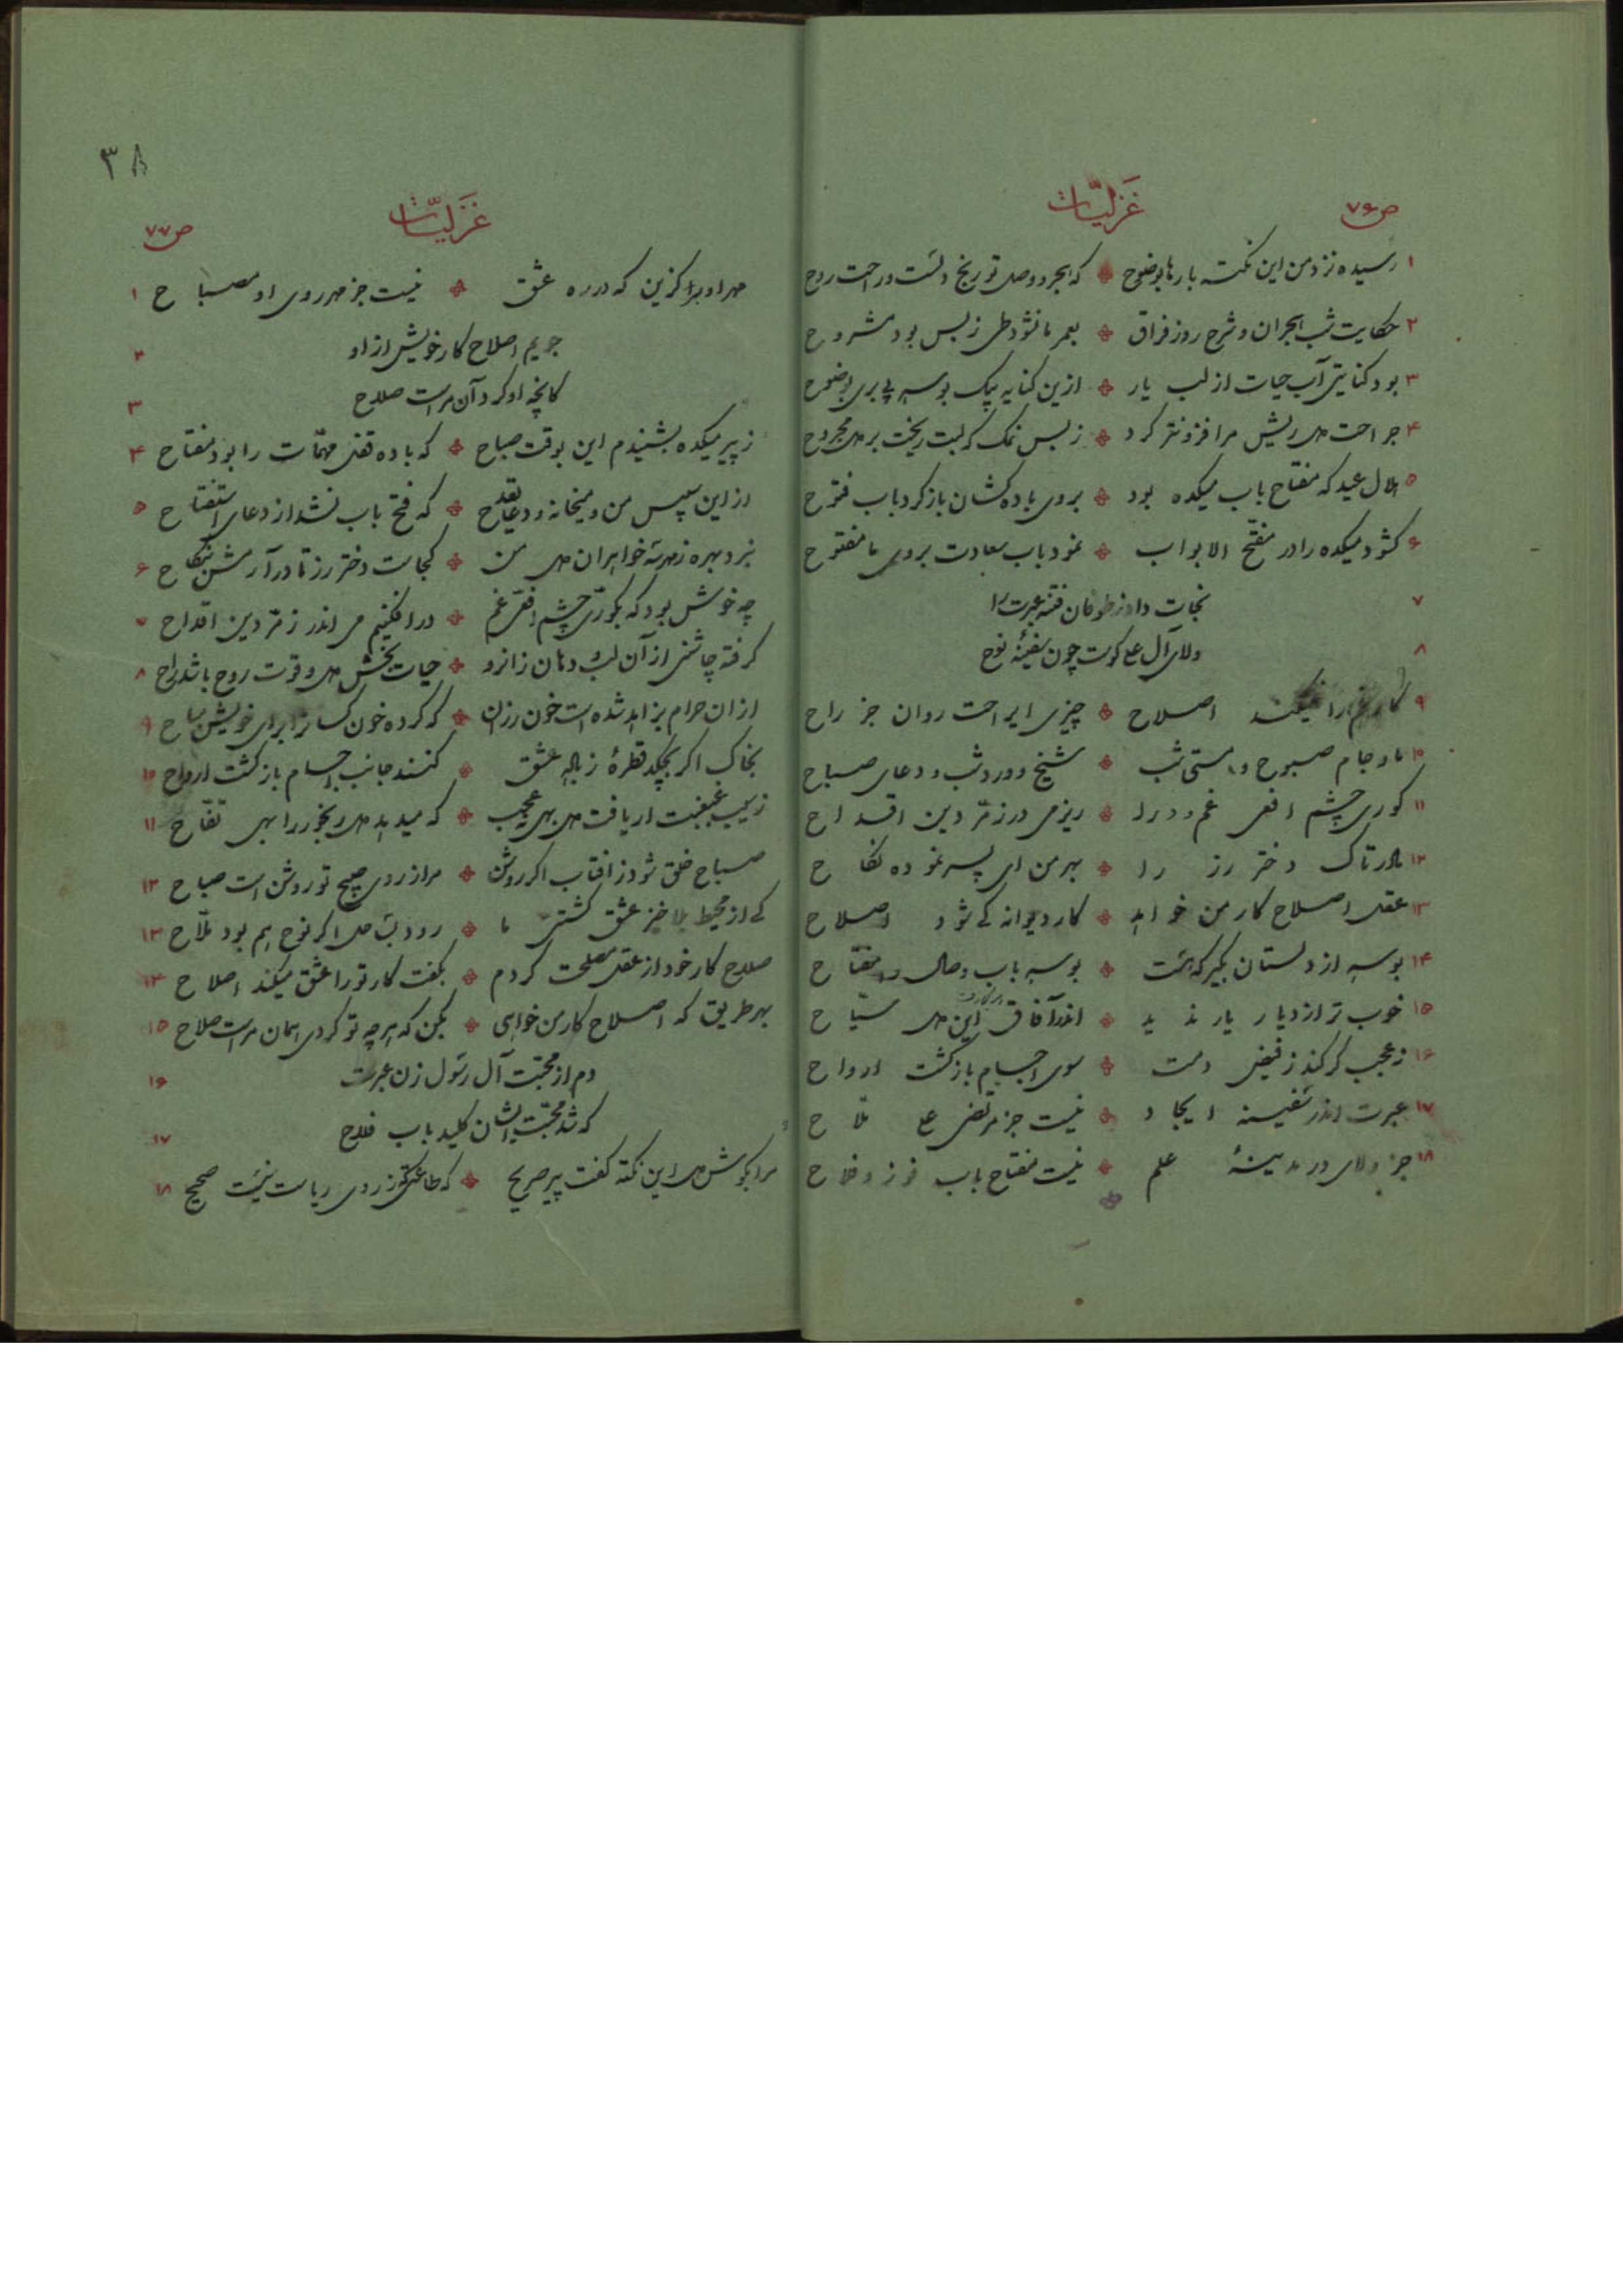 ص۷۶
غزلیّات
۱ رسیده نزد من این نکته بارها بوضوح ❖ که هجر و وصل تو رنج دلست و راحت روح
۲ حکایت شب هجران و شرح روز فراق ❖ بعمر ما نشود طی ز بس بود مشروح
۳ بود کنایتی آب حیات از لب یار ❖ ازین کنایه بیک بوسه پی بری بوضوح
۴ جراحت دل ریش مرا فزونتر کرد ❖ ز بس نمک که لبت ریخت بر دل مجروح
۵ هلال عید که مفتاح باب میکده بود ❖ بروی باده کشان باز کرد باب فتوح
۶ گشود میکده را در مفتح الابواب ❖ نمود باب سعادت بروی ما مفتوح
۷ نجات داد ز طوفان فتنه عبرت را
۸ ولای آل علی کوست چون سفینهٔ نوح
۹ کار غم را نمیکند اصلاح ❖ چیزی ای راحت روان جز راح
۱۰ ما و جام صبوح و مستی شب ❖ شیخ و ورد شب و دعای صباح
۱۱ کوری چشم افعی غم و درد ❖ ریز می در زمردین اقداح
۱۲ مادر تاک دختر رز را ❖ بهر من ای پسر نموده نکاح
۱۳ عقل اصلاح کار من خواهد ❖ کار دیوانه کی شود اصلاح
۱۴ بوسه از دلستان بگیر که هست ❖ بوسه باب وصال را مفتاح
۱۵ خوب تر از دیار یار ندید ❖ اندر آفاق این دل سیّاح
۱۶ نه عجب گر کند ز فیض دمت ❖ سوی اجسام بازگشت ارواح
۱۷ عبرت اندر سفینهٔ ایجاد ❖ نیست جز مرتضی علی ملّاح
۱۸ جز ولای در مدینهٔ علم ❖ نیست مفتاح باب فوز و فلاح
۳۸
غزلیّات
ص۷۷
مهر او برگزین که در ره عشق ❖ نیست جز مهر روی او مصباح ۱
جویم اصلاح کار خویش از او ۲
کانچه او کرد آن مراست صلاح ۳
ز پیر میکده بشنیدم این بوقت صباح ❖ که باده قفل مهمّات را بود مفتاح ۴
از این سپس من و میخانه و دعای قدح ❖ که فتح باب نشد از دعای استفتاح ۵
نبرد بهره ز مهر خواهران دل من ❖ کجاست دختر رز تا درآرمش بنکاح ۶
چه خوش بود که بکوری چشم افعی غم ❖ درافکنیم می اندر زمرّدین اقداح ۷
گرفته چاشنی از آن لب و دهان زانرو ❖ حیات بخش دل و قوت روح باشد راح ۸
از آن حرام بزاهد شده است خون رزان ❖ که کرده خون کسانرا برای خویش مباح ۹
بخاک اگر بچکد قطرهٔ ز باده عشق ❖ کنند جانب اجسام بازگشت ارواح ۱۰
ز سیب غبغبت ار یافت دل بهی نه عجب ❖ که میدهد دل رنجور را بهی تفّاح ۱۱
صباح خلق شود ز آفتاب اگر روشن ❖ مرا ز روی صبیح تو روشن است صباح ۱۲
کی از محیط بلاخیز عشق کشتی ما ❖ رود بساحل اگر نوح هم بود ملّاح ۱۳
صلاح کار خود از عقل مصلحت کردم ❖ بگفت کار تو را عشق میکند اصلاح ۱۴
بهر طریق که اصلاح کار من خواهی ❖ بکن که هر چه تو کردی همان مراست صلاح ۱۵
دم از محبّت آل رسول زن عبرت ۱۶
که شد محبّت ایشان کلید باب فلاح ۱۷
مرا بگوش دل این نکته گفت پیر صریح ❖ که طاعتی که ز روی ریاست نیست صحیح ۱۸